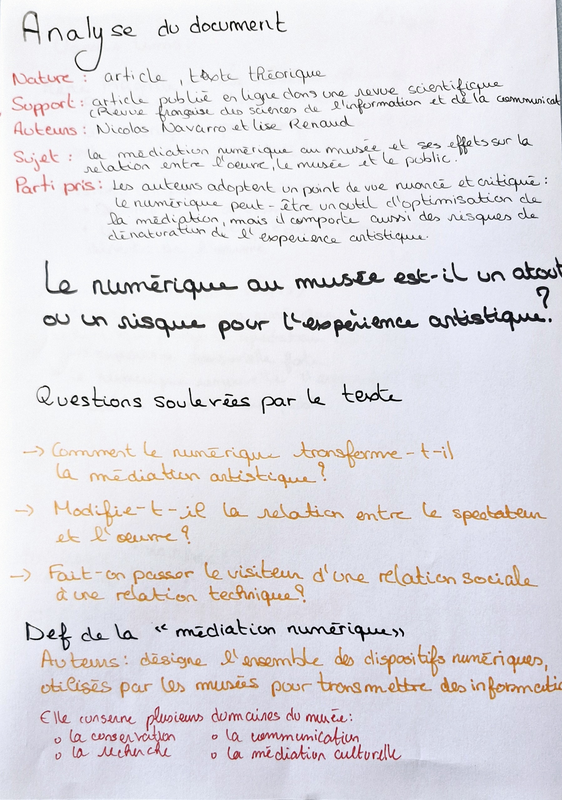 Analyse du document
Nature : article, texte théorique
Support : article publié en ligne dans une revue scientifique
(Revue française des sciences de l'information et de la communicat
Auteurs : Nicolas Navarro et Lise Renaud
Sujet : la médiation numérique au musée et ses effets sur la
relation entre l'oeuvre, le musée et le public.
Parti pris : Les auteurs adoptent un point de vue nuancé et critique :
le numérique peut-être un outil d'optimisation de
la médiation, mais il comporte aussi des risques de
dénaturation de l'expérience artistique.
Le numérique au musée est-il un atout
ou un risque pour l'expérience artistique ?
Questions soulevées par le texte
-> Comment le numérique transforme-t-il
la médiation artistique ?
-> Modifie-t-il la relation entre le spectateur
et l'oeuvre ?
-> Fait-on passer le visiteur d'une relation sociale
à une relation technique ?
Def de la "médiation numérique"
Auteurs : désigne l'ensemble des dispositifs numériques,
utilisés par les musées pour transmettre des informatio
Elle concerne plusieurs domaines du musée :
o la conservation o la communication
o la recherche o la médiation culturelle